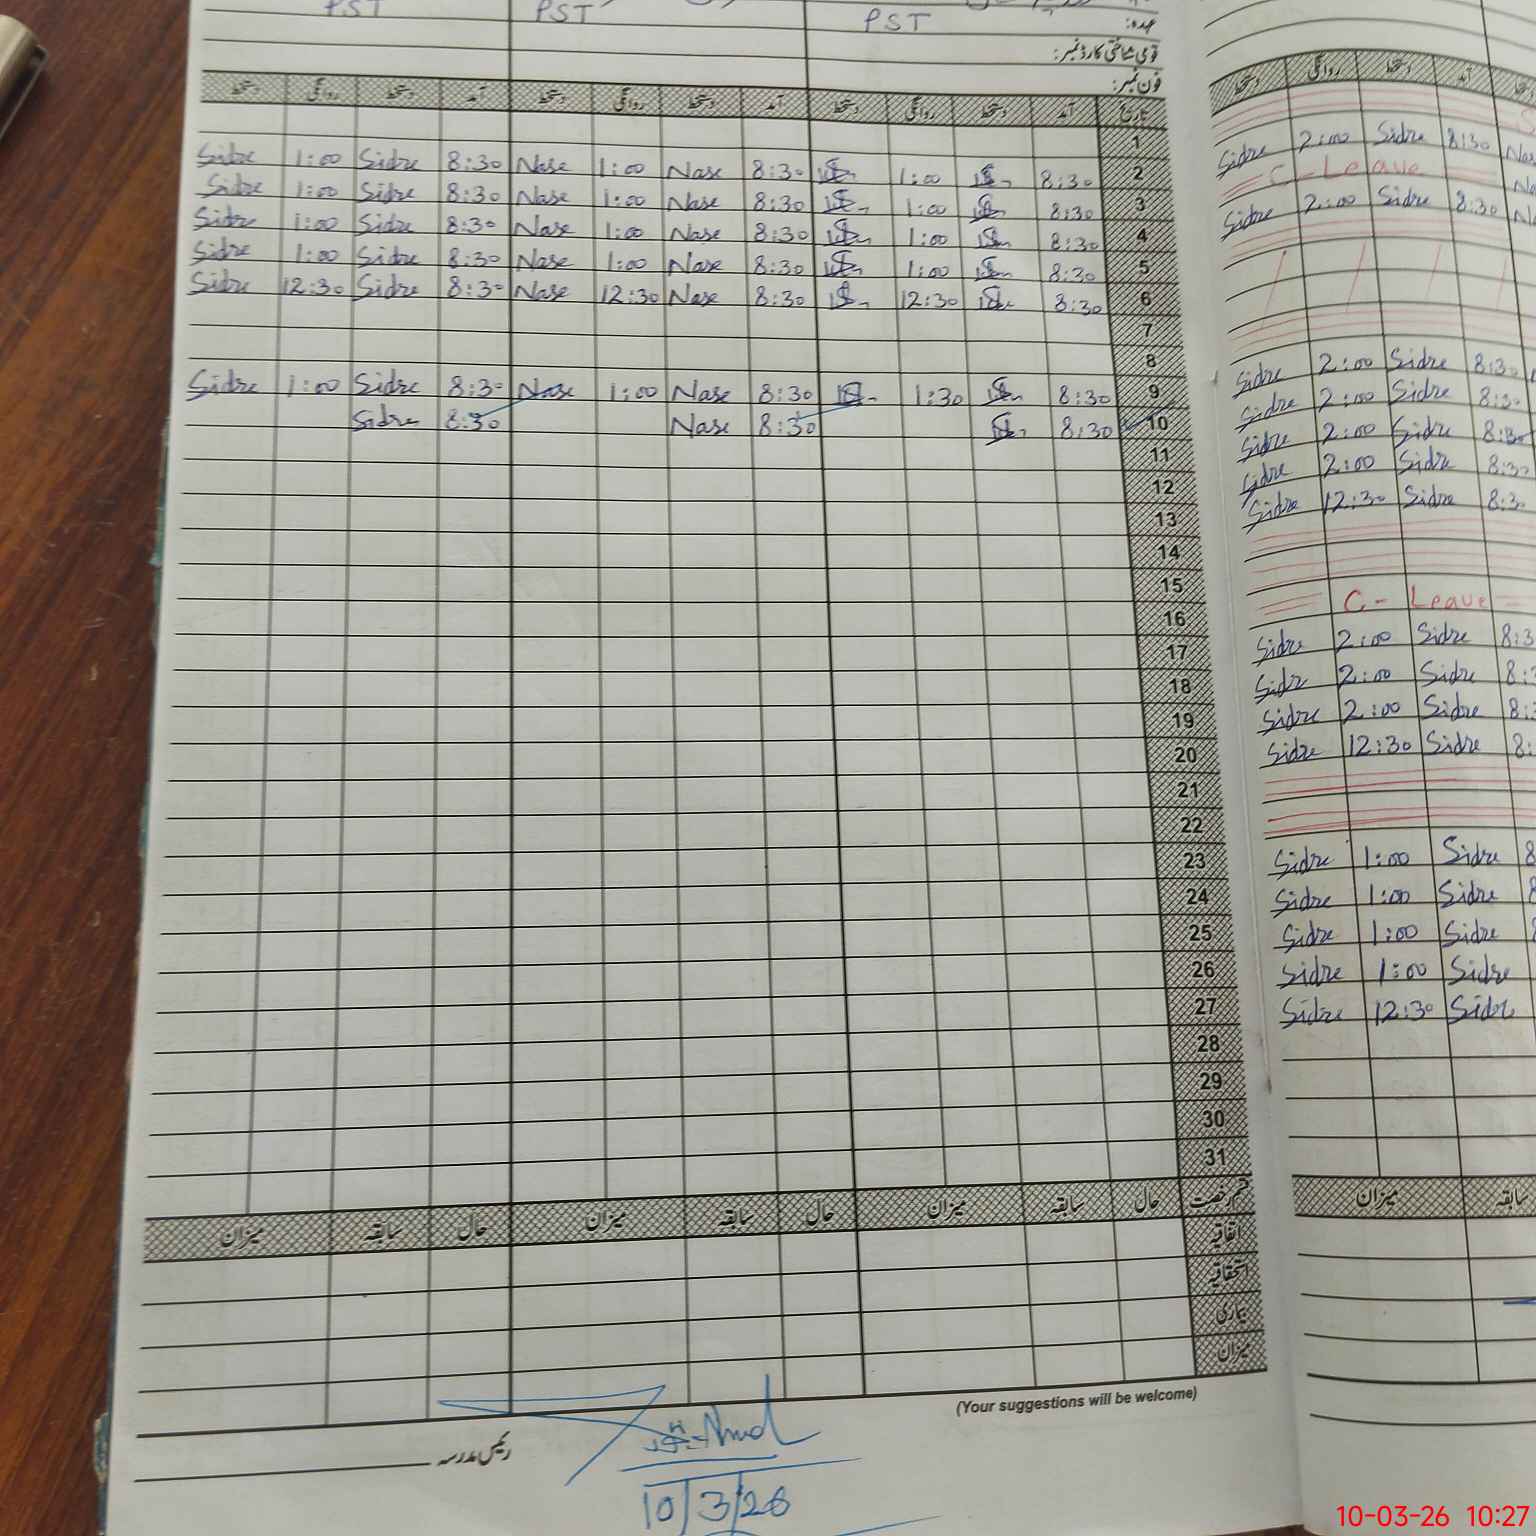 PST PST PST عہدہ:
قومی شناختی کارڈ نمبر:
فون نمبر:
دستخط روانگی دستخط آمد دستخط روانگی دستخط آمد دستخط روانگی دستخط آمد تاریخ
1
Sidre 1:00 Sidre 8:30 Nase 1:00 Nase 8:30 1:00 8:30 2
Sidre 1:00 Sidre 8:30 Nase 1:00 Nase 8:30 1:00 8:30 3
Sidre 1:00 Sidre 8:30 Nase 1:00 Nase 8:30 1:00 8:30 4
Sidre 1:00 Sidre 8:30 Nase 1:00 Nase 8:30 1:00 8:30 5
Sidre 12:30 Sidre 8:30 Nase 12:30 Nase 8:30 12:30 8:30 6
7
8
Sidre 1:00 Sidre 8:30 Nase 1:00 Nase 8:30 1:30 8:30 9
Sidre 8:30 Nase 8:30 8:30 10
11
12
13
14
15
16
17
18
19
20
21
22
23
24
25
26
27
28
29
30
31
میزان سابقہ حال میزان سابقہ حال میزان سابقہ حال قسم رخصت
اتفاقیہ
استحقاقیہ
بیماری
میزان
(Your suggestions will be welcome)
رئیس مدرسہ
10/3/26
دستخط روانگی دستخط آمد
Sidre 2:00 Sidre 8:30
C-Leave
Sidre 2:00 Sidre 8:30
Sidre 2:00 Sidre 8:30
Sidre 2:00 Sidre 8:30
Sidre 2:00 Sidre 8:30
Sidre 2:00 Sidre 8:30
Sidre 12:30 Sidre 8:30
C- Leave
Sidre 2:00 Sidre 8:3
Sidre 2:00 Sidre 8:
Sidre 2:00 Sidre 8:
Sidre 12:30 Sidre 8:
Sidre 1:00 Sidre 8
Sidre 1:00 Sidre 8
Sidre 1:00 Sidre 8
Sidre 1:00 Sidre
Sidre 12:30 Sidre
میزان سابقہ
10-03-26 10:27